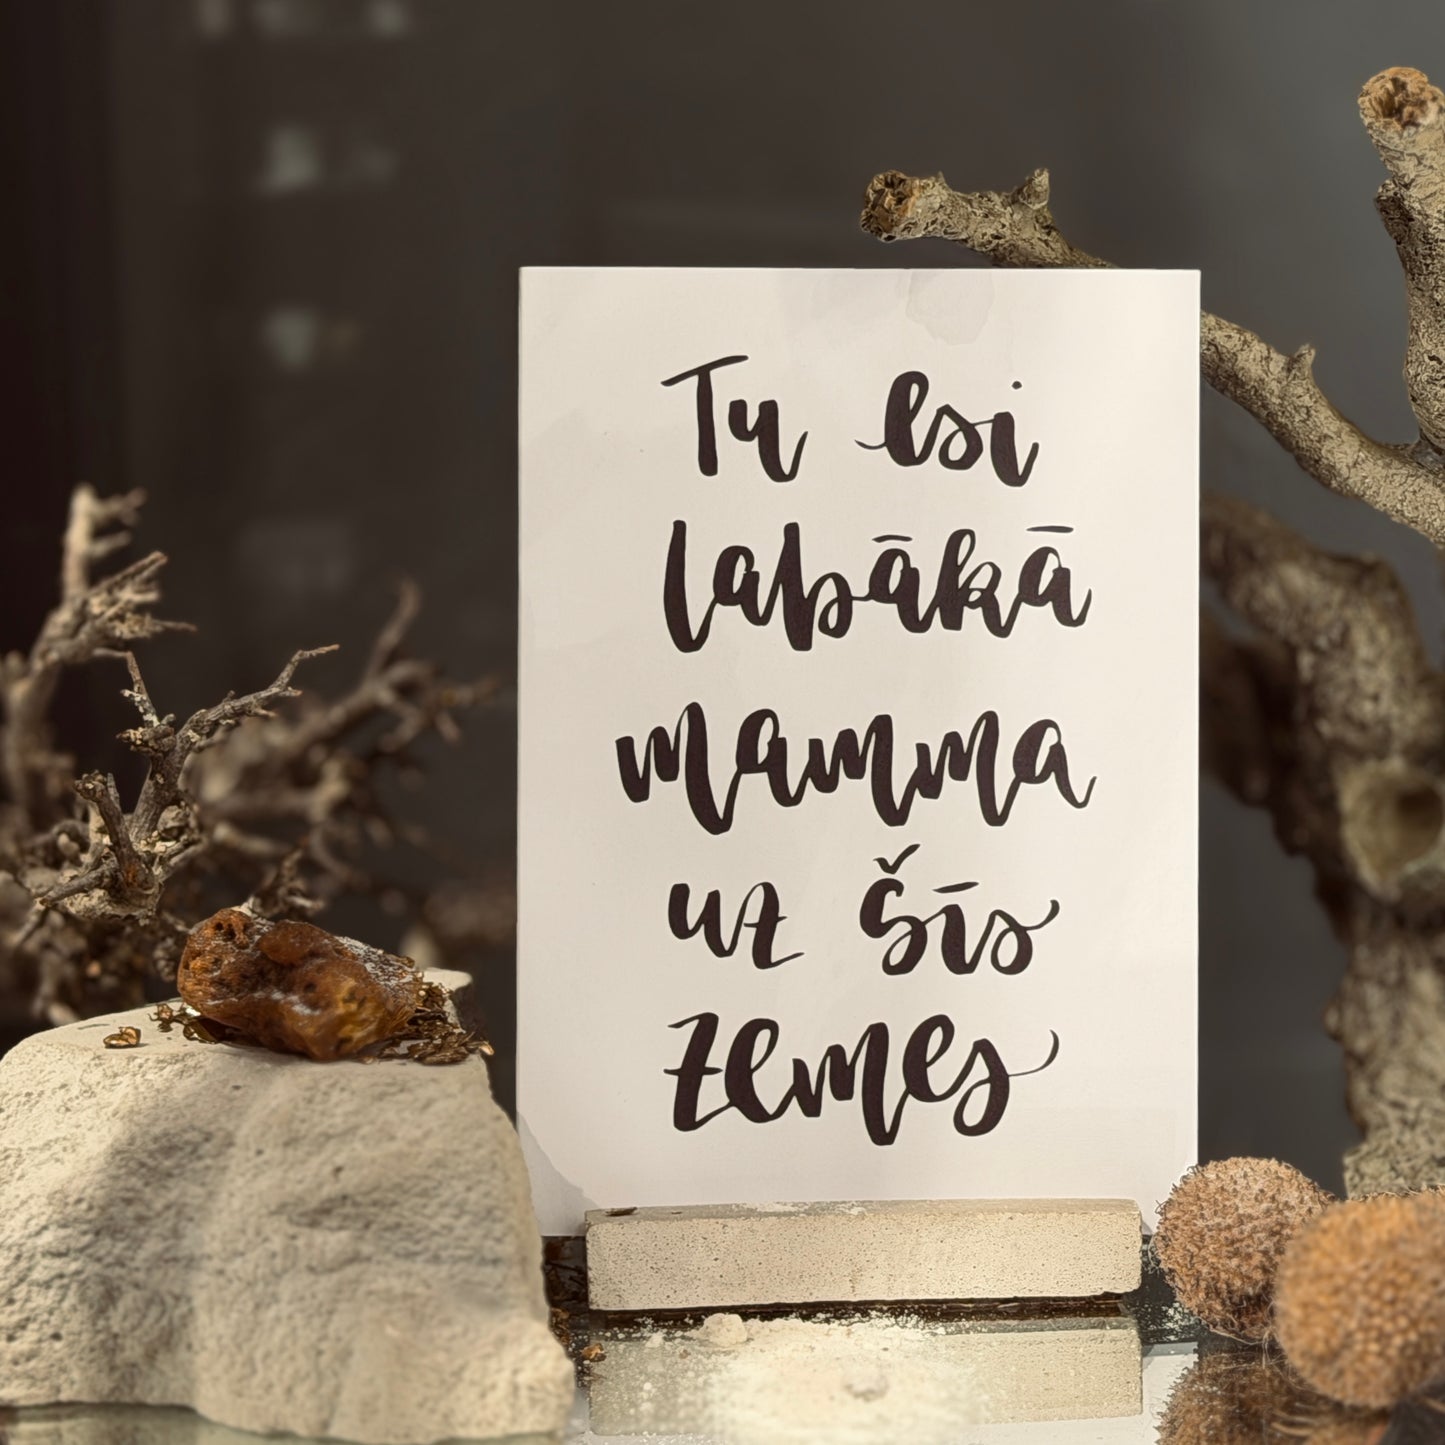 Tu esi
labākā
mamma
uz šīs
zemes